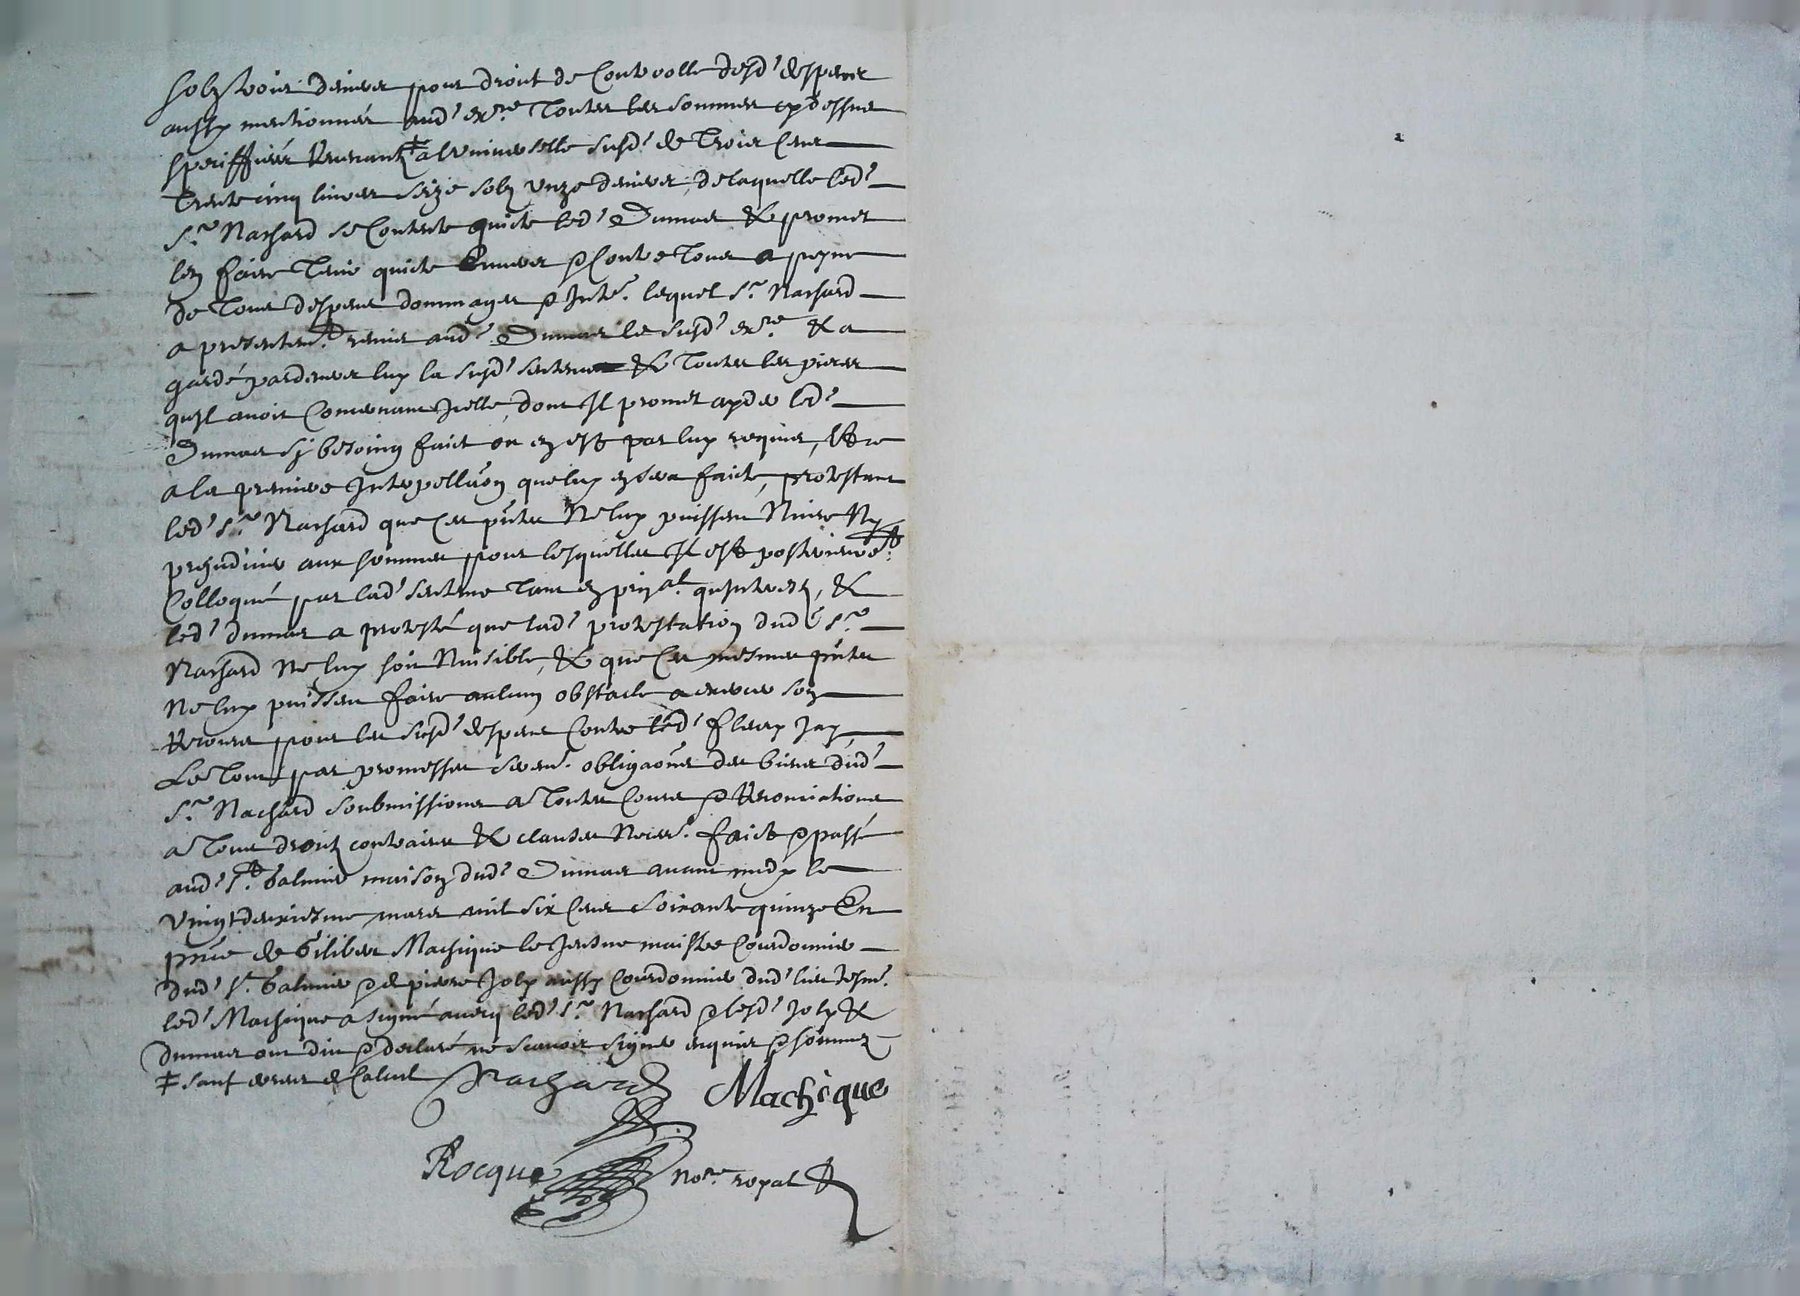 solz trois deniers pour droit de Controolle desd' despens
aussy mentionnés aud' exre Toutes les sommes cy dessus
speciffiées Revenant ‡ a l'universelle susd' de Trois Cens
Trente cinq livres seize solz unze deniers, de laquelle led'
Sr Nachard se Contente quicte led' Dumas & promet
len faire Tenir quicte Envers & Contre Tous a peyne
de Tous despens dommages & Intes. lequel Sr Nachard
a presentemt remis aud' Dumas le susd' exre & a
gardé pardevers luy la susd' sentence & Toutes les pieces
qu'il avoit Concernant Icelle, dont Il promet ayder led'
Dumas sy besoing faict ou en est par luy requis, &ce
a la premiere Interpellaon que luy en sera faicte, protestant
led' Sr Nachard que Ces pntes Ne luy puissent Nuire Ny
prejudicier aux sommes pour lesquelles Il est posterieuremt
Colloqué par lad' sentence Tant en prinal. qu'Interestz, &
led' dumas a protesté que lad' protestation dud' Sr
Nachard Ne luy soit Nuisible, & que Ces mesmes pntes
Ne luy puissent faire aulcun obstacle a exercer son
Recours pour les susd' despens Contre led' fleury Jay
Le Tout par promesses serm. obligaons des biens dud'
Sr Nachard soubmissions a Toutes Cours & Renonciations
a Tous droitz contraires & clauses Necess. faict & passé
aud' St Galmier maison dud' Dumas avant midy le
vingt deuxiesme mars mil six Cens soixante quinze En
pnce de Gilibert Machique le Jeusne maistre Courdonnier
dud' St Galmier & de pierre Joly aussy Courdonnier dud' lieu tesm.
led' Machique a signé avecq led' Sr Nachard & lesd' Joly &
dumas ont dit & declaré ne scavoir signer enquis & sommez
‡ sauf erreur de Calcul Nachard Machique
Rocque Nore royal